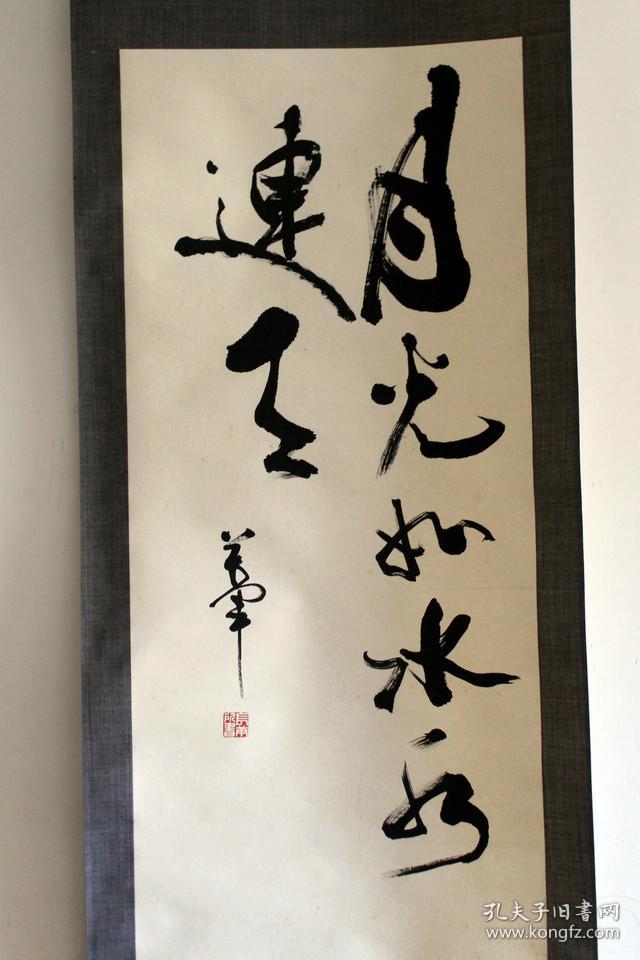 月光如水水
連天
孔夫子旧書网
www.kongfz.com